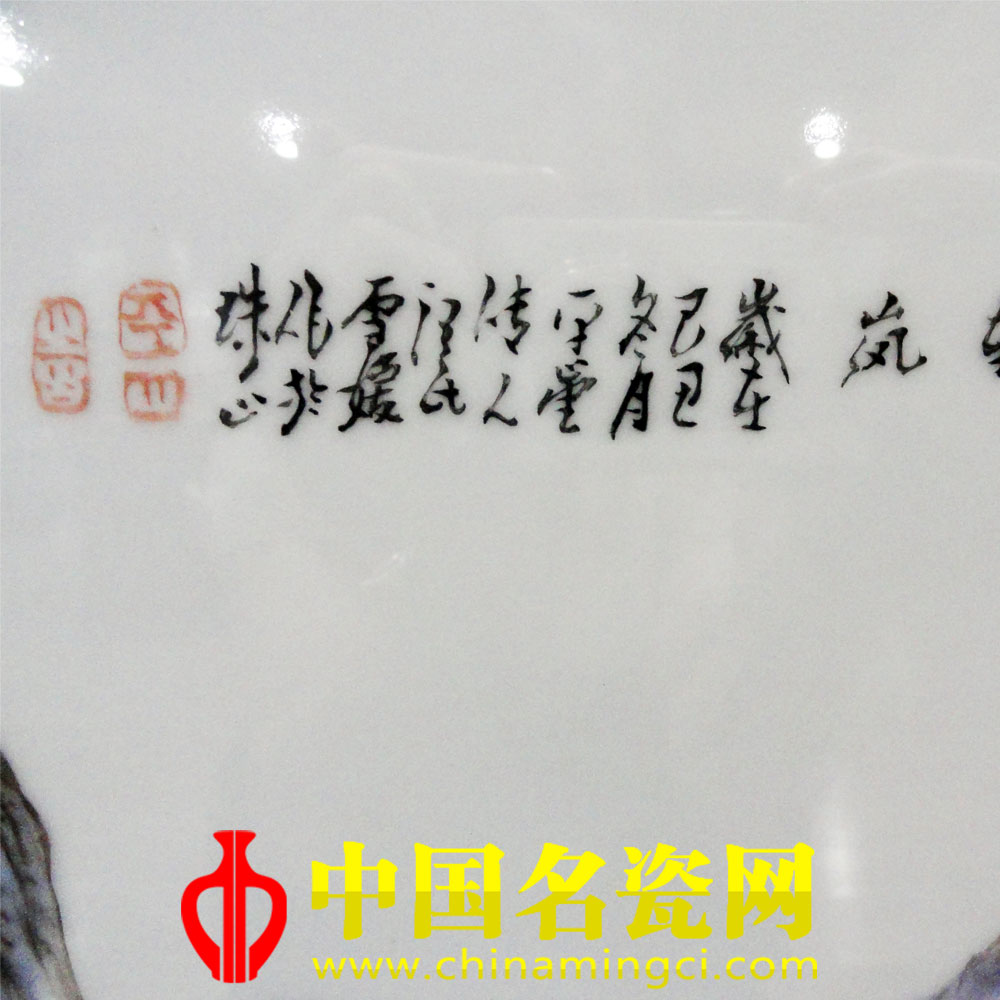 岚
歲在
己巳
冬月
平
傳人
汪氏
雪媛
作於
珠山
中国名瓷网
www.chinamingci.com